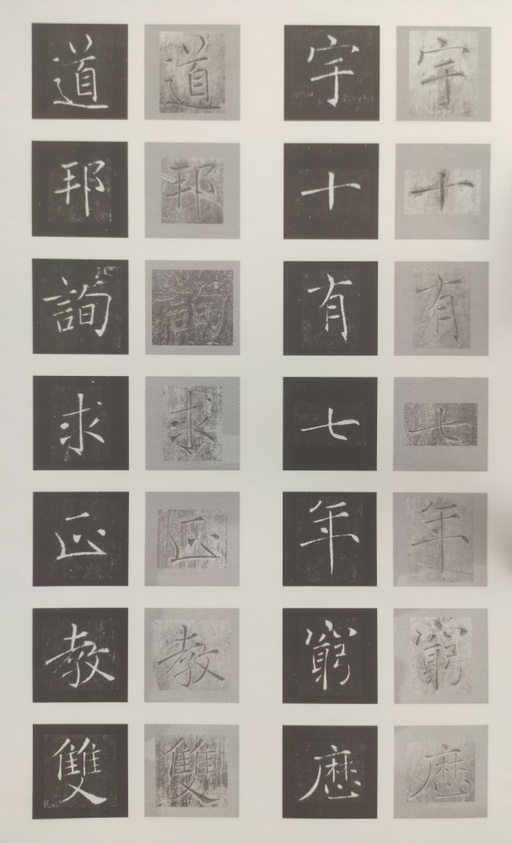 宇十有七年窮歷
宇十有七年窮歷
道邦詢求正教雙
道邦詢求正教雙